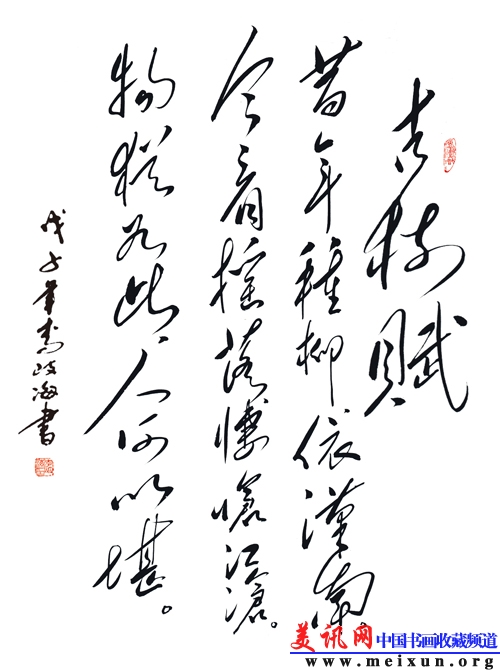 古树赋
昔年種柳依漢南。
今看摇落悽愴江滄。
物猶如此、人何以堪。
戊子年岐海書
美讯网 中国书画收藏频道
www.meixun.org